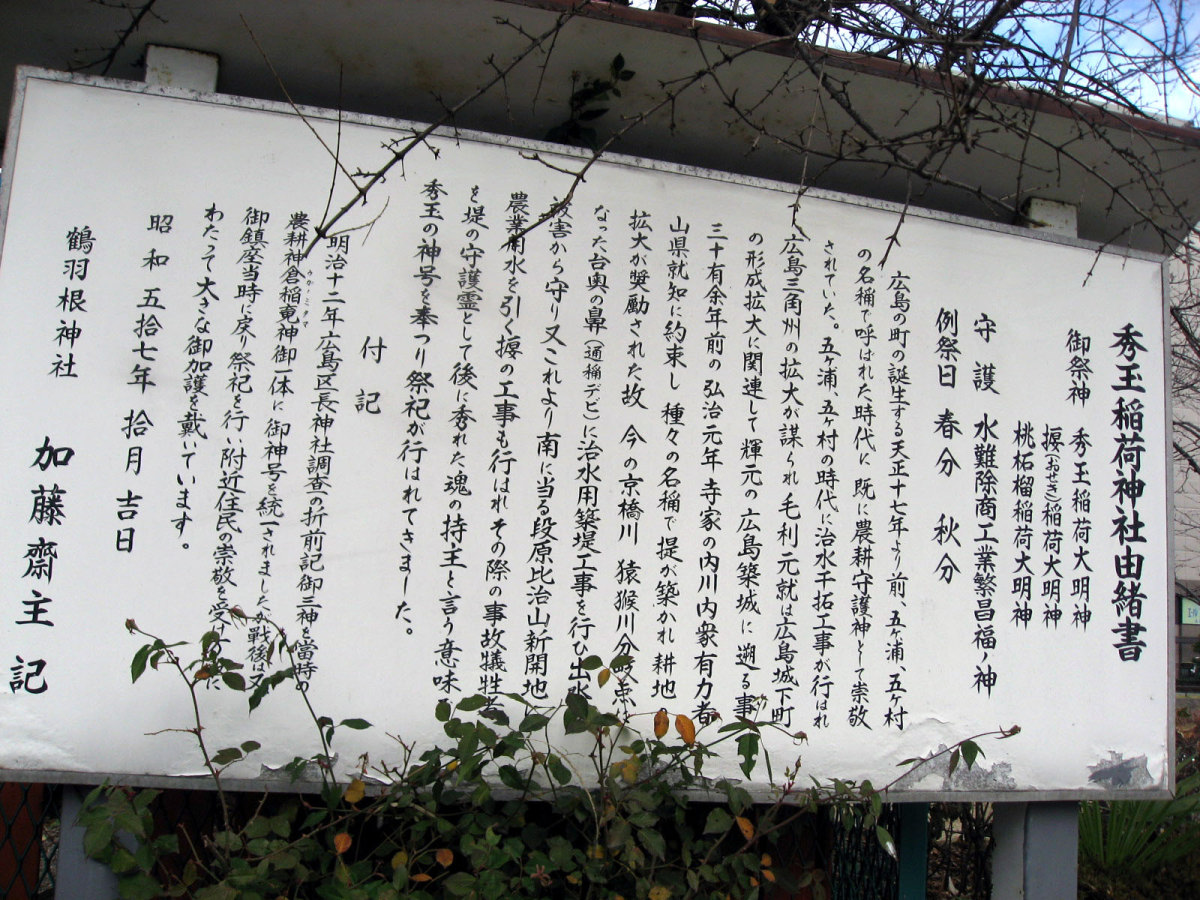 秀玉稲荷神社由緒書
御祭神 秀玉稲荷大明神
堰(おせき)稲荷大明神
桃柘榴稲荷大明神
守護 水難除商工業繁昌福ノ神
例祭日 春分 秋分
広島の町の誕生する天正十七年より前、五ヶ浦、五ヶ村
の名稱で呼ばれた時代に既に農耕守護神として崇敬
されていた。五ヶ浦、五ヶ村の時代に治水干拓工事が行はれ
広島三角州の拡大が謀られ毛利元就は広島城下町
の形成拡大に関連して輝元の広島築城に遡る事
三十有余年前の弘治元年寺家の内川内衆有力者
山県就知に約束し種々の名稱で提が築かれ耕地
拡大が奨励された故 今の京橋川 猿猴川分岐点は
なった台奥の鼻(通稱デヒ)に治水用築堤工事を行ひ出水
被害から守り又これより南に当る段原比治山新開地
農業用水を引く堰の工事も行はれその際の事故犠牲者
を堤の守護霊として後に秀れた魂の持主と言う意味
秀玉の神号を奉つり祭祀が行はれてきました。
付記
明治十二年広島区長神社調査の折前記御三神を當時の
農耕神倉稲竜神御一体に御神号を統一されましたが戦後は又
御鎮座当時に戻り祭祀を行い附近住民の崇敬を受け
わたって大きな御加護を戴いています。
昭和五拾七年 拾月吉日
鶴羽根神社 加藤齋主 記